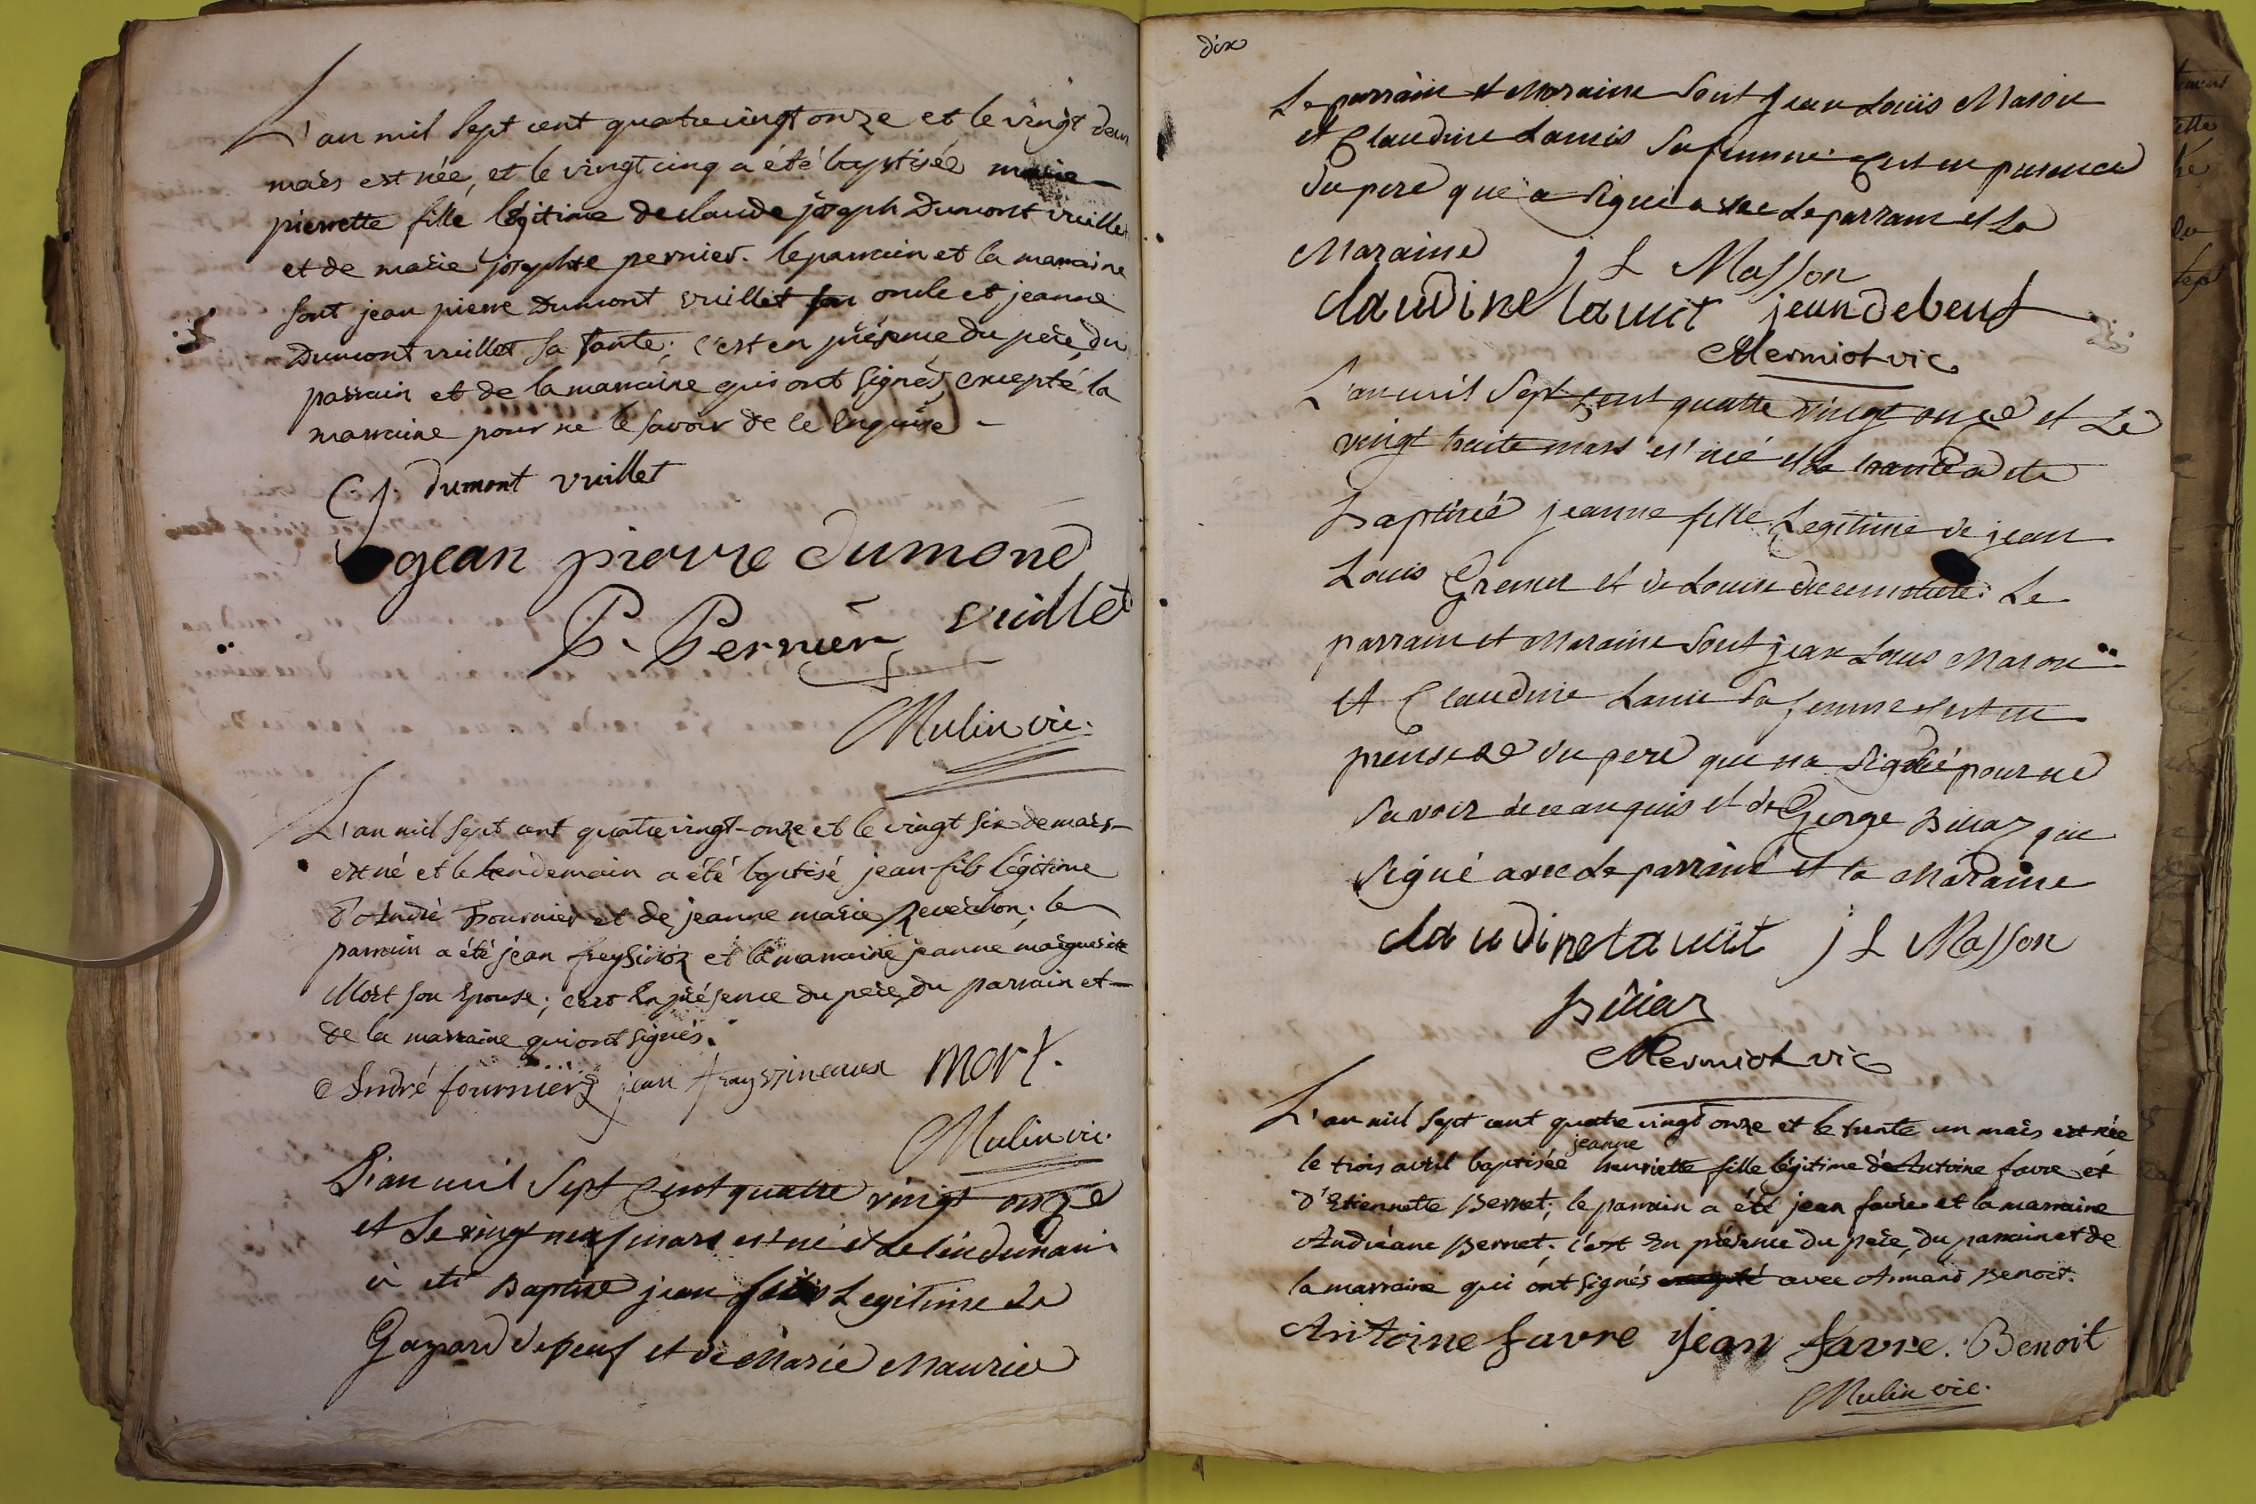 L'an mil sept cent quatrevingt onze et le vingt deux
mars est née, et le vingt cinq a été baptisée marie
pierrette fille légitime de claude joseph Dumont vuillet
et de marie josephte pernier. le parrain et la marraine
sont jean pierre Dumont vuillet son oncle et jeanne
Dumont vuillet sa tante; c'est en présence du père, du
parrain et de la marraine qui ont signés, excepté la
marraine pour ne le savoir de ce enquise
C. J. dumont vuillet
jean pierre dumond
vuillet
P. Pernier
Mulin vic.
L'an mil sept cent quatrevingt-onze et le vingt six de mars
est né et le lendemain a été baptisé jean fils légitime
d'André fournier et de jeanne marie Reverchon; le
parrain a été jean freysinioz et la marraine jeanne marguerite
Mort son Epouse; c'est en présence du père, du parrain et
de la marraine qui ont signés.
André fournier jean frayssineaux mort.
Mulin vic.
L'an mil Sept Cent quatre vingt onze
et Le vingt neuf mars est né et Le lendemain
a eté Baptisé jean fils Legitime de
Gaspard debeuf et de Marie Maurier
dix
Le parrain et Maraine Sont Jean Louis Mason
et Claudine Lamis Sa femme C'est en presence
du pere que a Signé avec Le parrain et La
Maraine J L Masson
claudine lauut jean debeuf
Mermiot vic
L'an mil Sept Cent quatte vingt onze et Le
vingt trente mars es' née et Le trante a ete
Baptisée jeanne fille Legitime de jean
Louis Grenier et de Louise Le
parrain et Maraine Sont jean Louis Mason
et Claudine Lamis Sa femme C'est en
presence du pere que na Signé pour ne
Savoir de ce anquis et de George Billiaz que
Signé avec Le parrain et la Maraine
claudine lauut J L Masson
Billiaz
Mermiot vic
L'an mil sept cent quatre vingt onze et le trente un mars est née
jeanne
le trois avril baptisée henriette fille légitime d'Antoine favre et
d'Etiennette Bernet; le parrain a été jean favre et la marraine
Andréane Bernet; c'est En présence du père, du parrain et de
la marraine qui ont signés excepté avec Armand Benoit.
Antoine favre Jean favre. Benoit
Mulin vic.